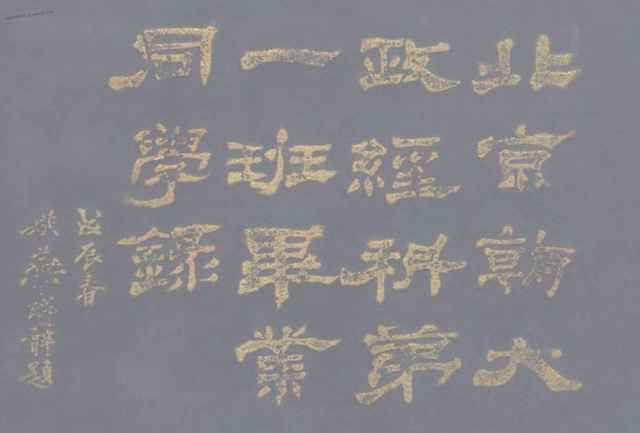 北京朝大
政經科第
一班畢業
同學錄
戊辰春
題